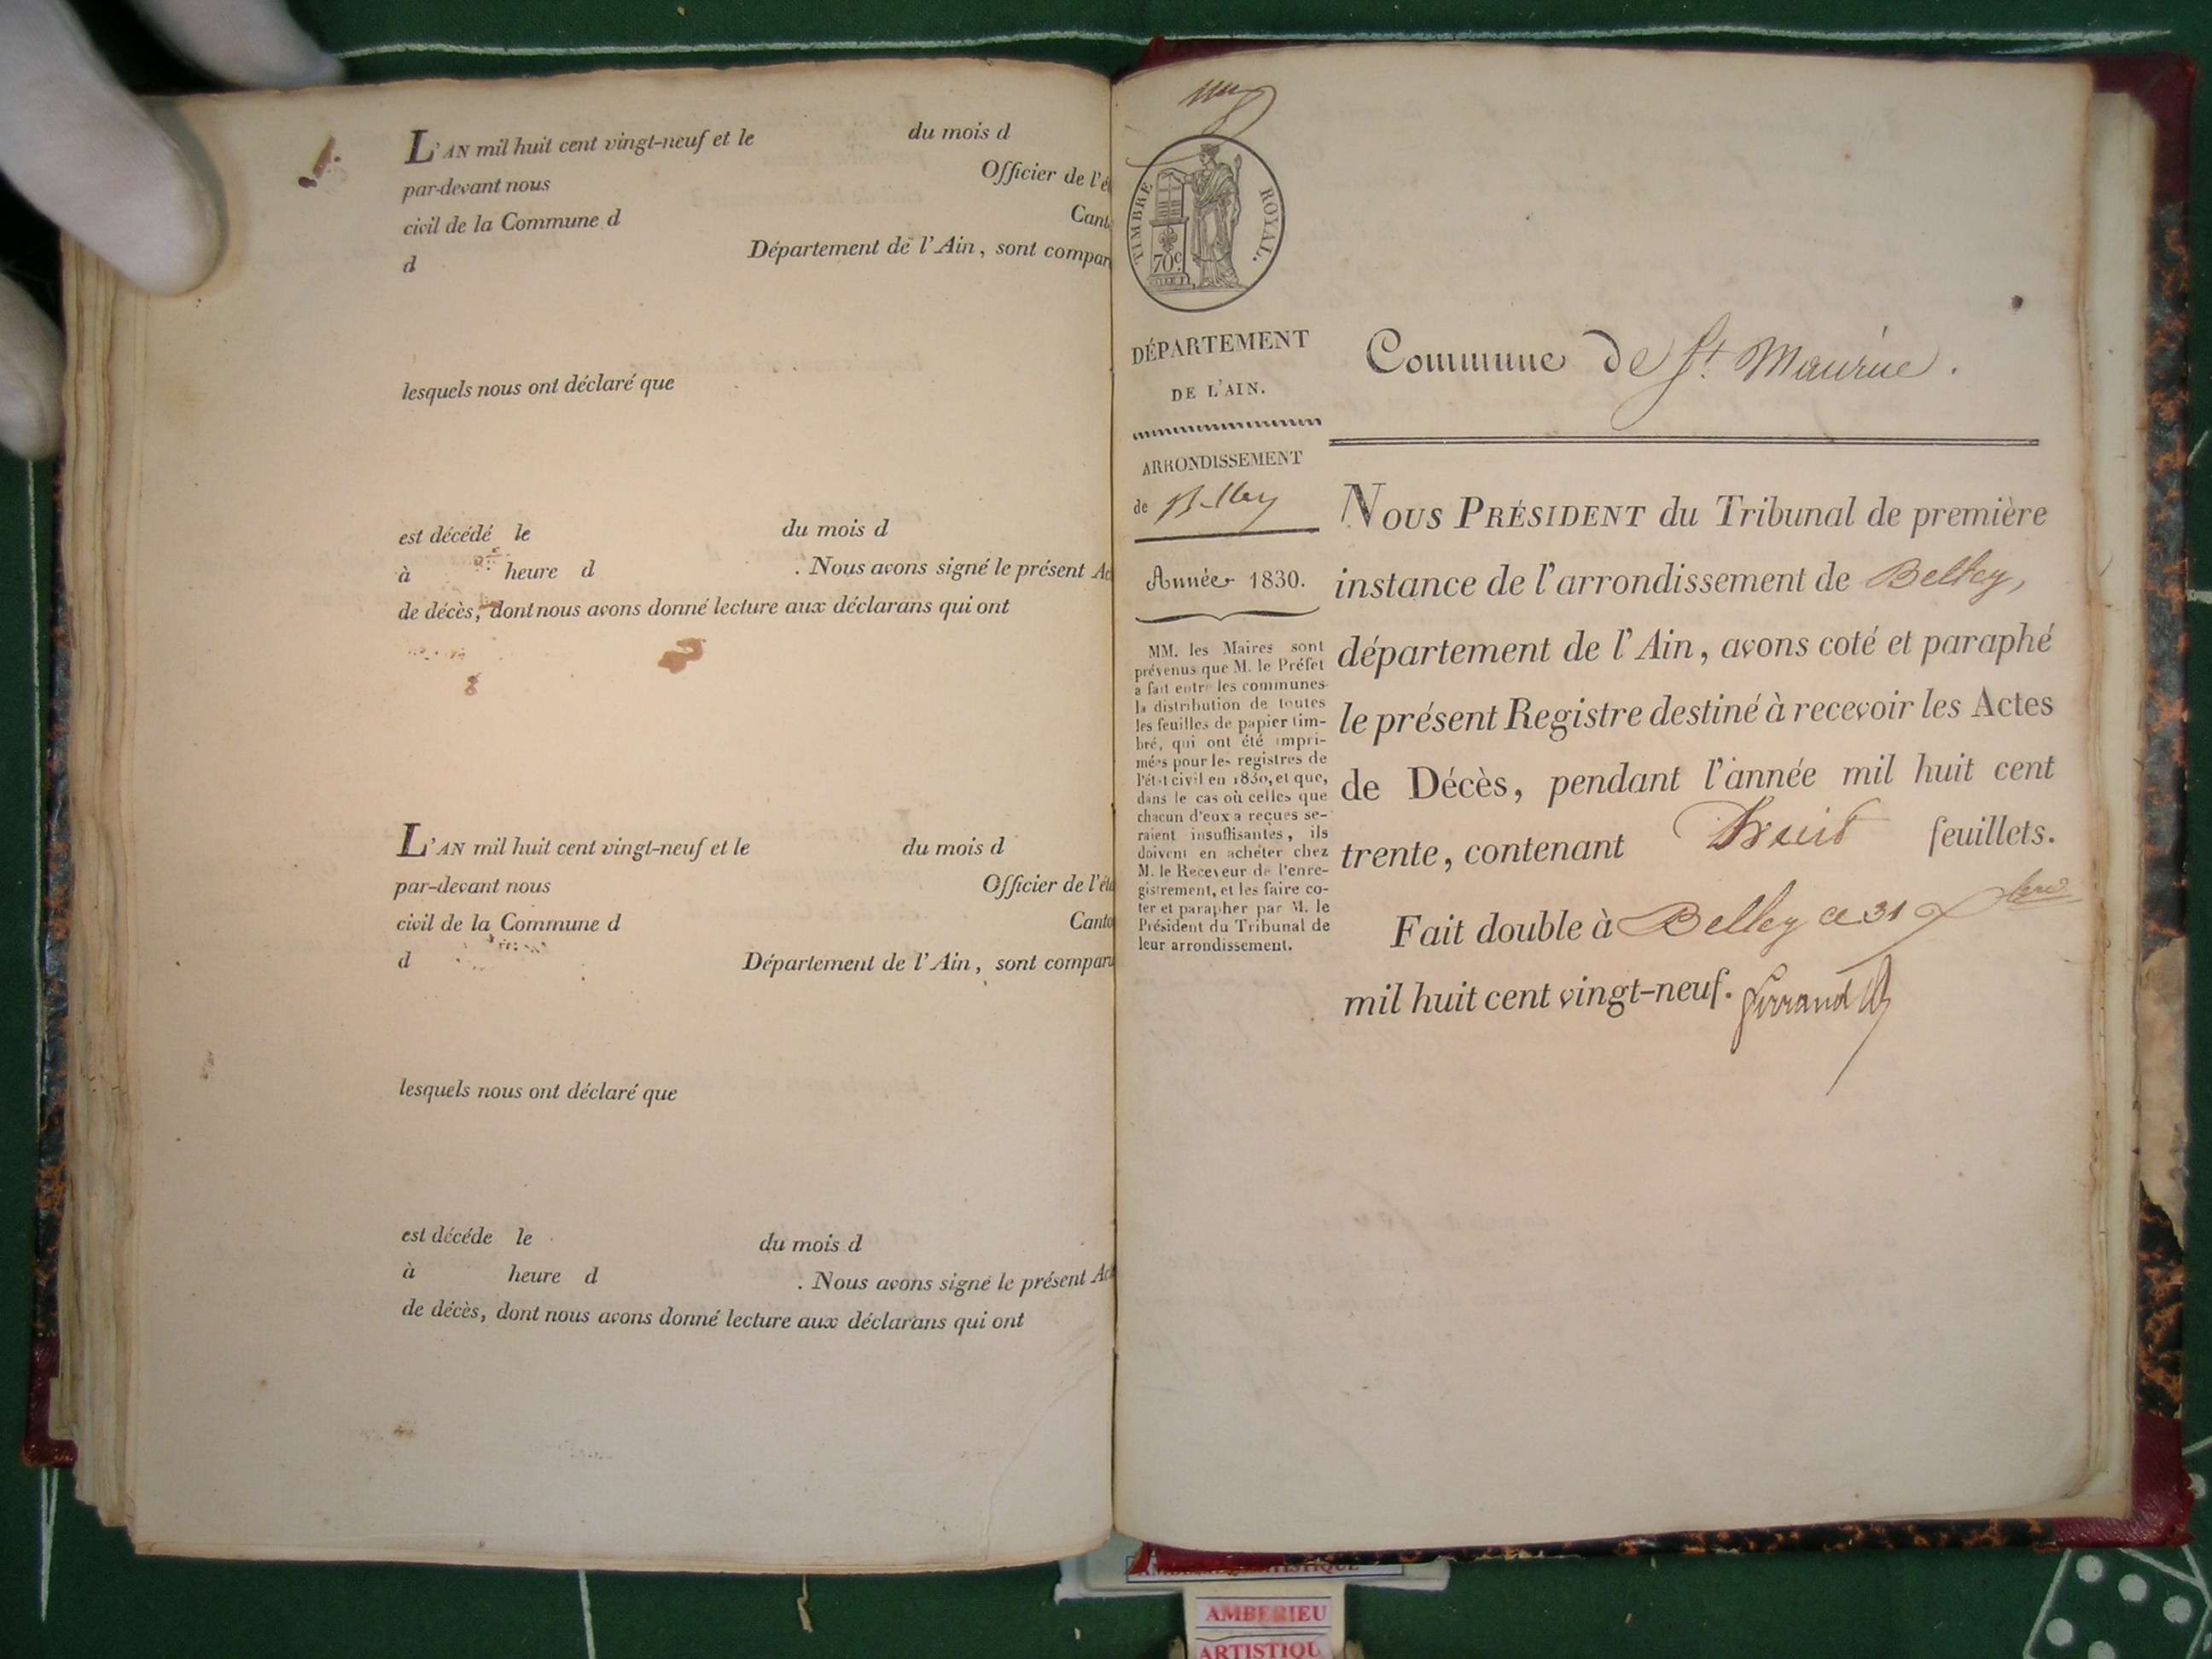 L'AN mil huit cent vingt-neuf et le du mois d
par-devant nous Officier de l'é
civil de la Commune d Cant
d Département de l'Ain, sont compar
lesquels nous ont déclaré que
est décédé le du mois d
à heure d . Nous avons signé le présent Ac
de décès, dont nous avons donné lecture aux déclarans qui ont
L'AN mil huit cent vingt-neuf et le du mois d
par-devant nous Officier de l'éta
civil de la Commune d Canto
d Département de l'Ain, sont comparu
lesquels nous ont déclaré que
est décéde le du mois d
à heure d . Nous avons signé le présent Act
de décès, dont nous avons donné lecture aux déclarans qui ont
TIMBRE ROYAL.
70c
DÉPARTEMENT
DE L'AIN.
ARRONDISSEMENT
de Belley
Année 1830.
MM. les Maires sont
prévenus que M. le Préfet
a fait entre les communes
la distribution de toutes
les feuilles de papier tim-
bré, qui ont été impri-
mées pour les registres de
l'état civil en 1830, et que,
dans le cas où celles que
chacun d'eux a reçues se-
raient insuffisantes, ils
doivent en acheter chez
M. le Receveur de l'enre-
gistrement, et les faire co-
ter et parapher par M. le
Président du Tribunal de
leur arrondissement.
Commune de St. Maurice.
NOUS PRÉSIDENT du Tribunal de première
instance de l'arrondissement de Belley,
département de l'Ain, avons coté et paraphé
le présent Registre destiné à recevoir les Actes
de Décès, pendant l'année mil huit cent
trente, contenant huit feuillets.
Fait double à Belley ce 31 Xbre
mil huit cent vingt-neuf. Ferrand
AMBERIEU
ARTISTIQU